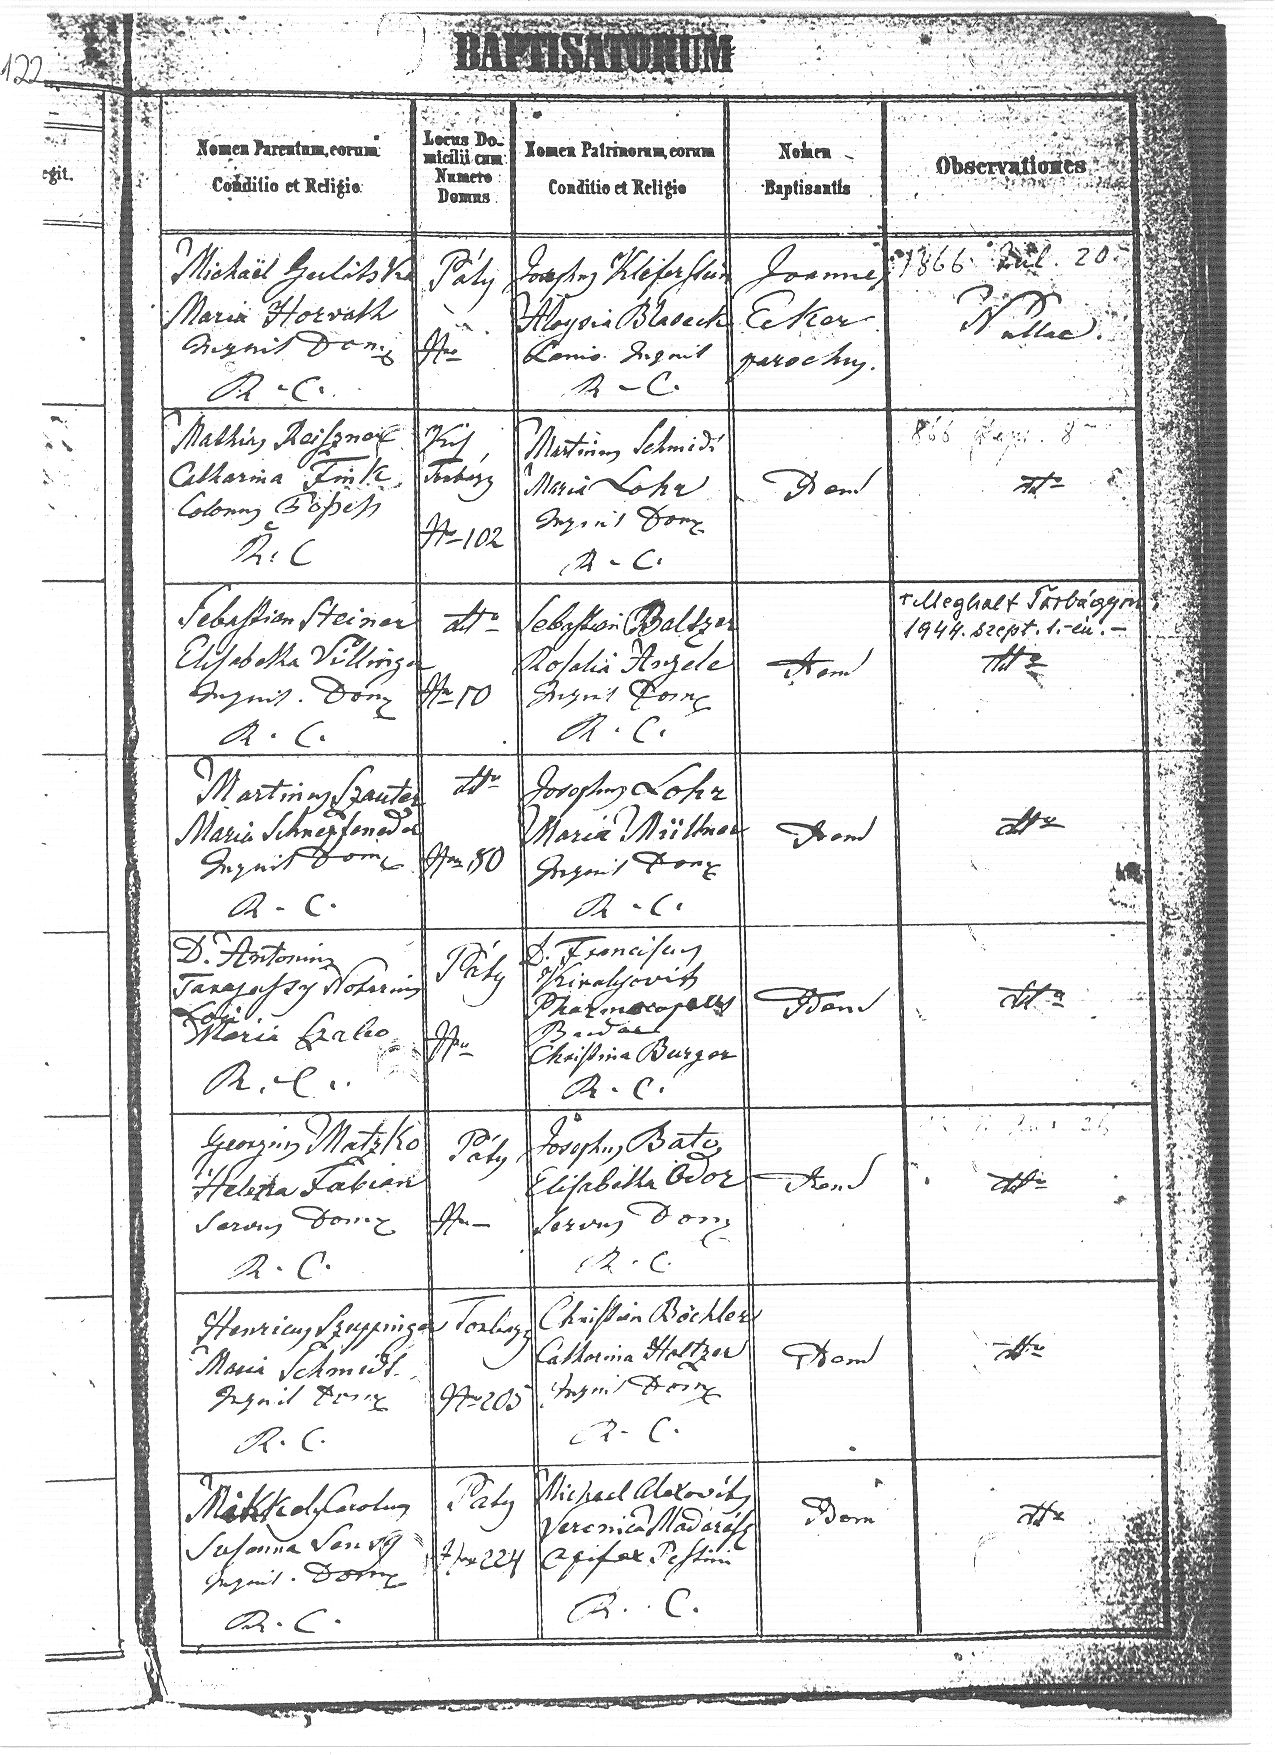 122
BAPTISATORUM
egit.
Nomen Parentum, eorum
Conditio et Religio
Locus Do-
micilii cum
Numero
Domus
Nomen Patrinorum, eorum
Conditio et Religio
Nomen
Baptisantis
Observationes
Michaël
Maria Horvath
Inquil Dom
R - C.
Páty
Nro
Josephus
Aloysia Blaseck
Inquil
R - C.
Joannes
Eker
parochus.
1866 Júl. 20.
Nullae.
Mathias Reiszner
Catharina Fink
Colonus
R. C
Kis
Torbágy
Nro 102
Martinus Schmidt
Maria Lohr
Inquil Dom
R - C.
Idem
866 8
dtto
Sebastian Steiner
Elisabetha Villinger
Inquil. Dom
R. C.
dtto
Nro 10
Sebastian Baltzer
Rosalia Angele
Inquil Dom
R. C.
Idem
+ Meghalt Torbágyon,
1944. szept. 1.-én. –
dtto
Martinus Szauter
Maria Schnepfeneder
Inquil Dom
R - C.
dtto
Nro 80
Josephus Lohr
Maria Müllner
Inquil Dom
R - C.
Idem
dtto
D. Antonius
Notarius
Loci
Maria Szabo
R. C.
Páty
Nro
D. Franciscus
Kiralyovits
Budae
Christina Burger
R - C.
Idem
dtto
Georgius Matzko
Helena Fabian
Servus Dom
R. C.
Páty
Nro –
Josephus Bato
Elisabetha Odor
Servus Dom
R. C.
Idem
26
dtto
Henricus Szuppinger
Maria Schmidt.
Inquil Dom
R. C.
Torbagy
Nro 205
Christian Böchler
Catharina Holtzer
Inquil Dom
R - C.
Idem
dtto
Carolus
Susanna
Inquil. Dom
R. C.
Páty
Nro 224
Michael Alexovits
Veronica Madarász
Opifex Pestini
R. C.
Idem
dtto